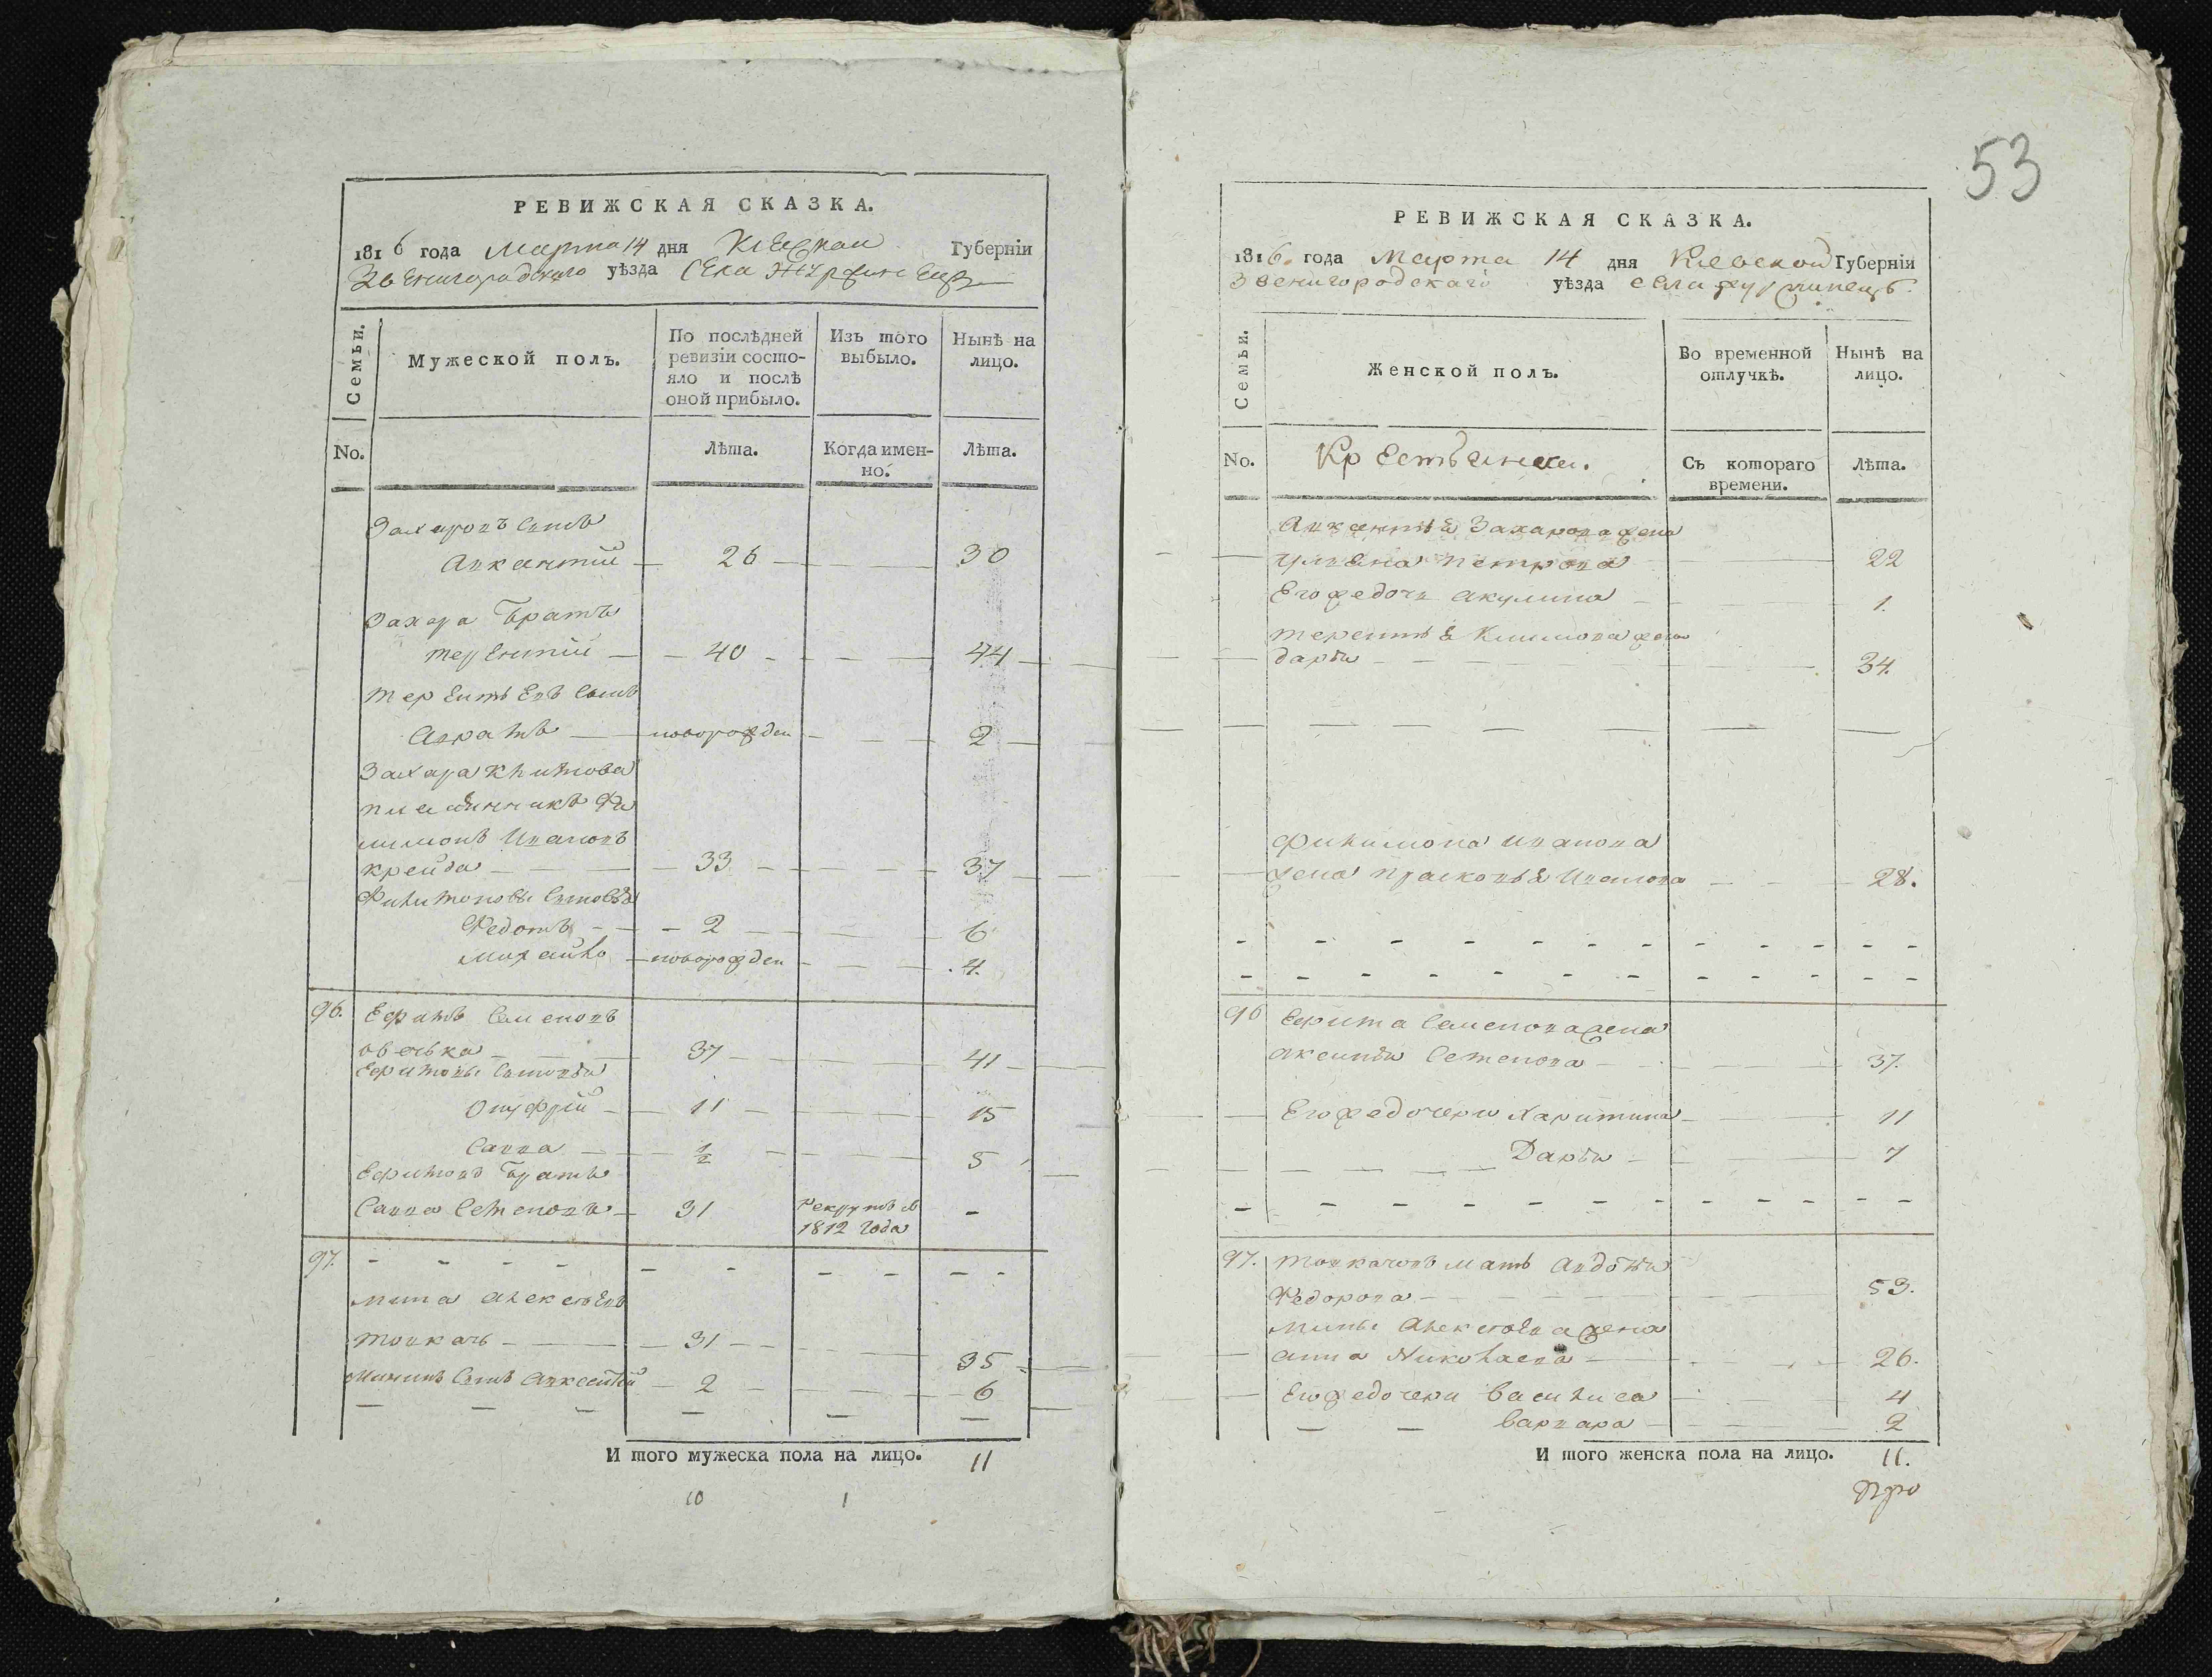 РЕВИЖСКАЯ СКАЗКА.
1816 года Марта 14 дня Киевской Губерніи
Звенигородскаго уѣзда Села
Семьи.
Мужеской полъ.
По послѣдней ревизіи состояло и послѣ оной прибыло.
Изъ того выбыло.
Нынѣ на лицо.
No.
Лѣта.
Когда именно.
Лѣта.
Захаровъ Сынъ
Авксентій 26 30
Захара Братъ
Терентій 40 44
Терентьевъ Сынъ
Авратъ новорожден 2
Захара Климова
племянникъ Фи
лимонъ Ивановъ
крейда 33 37
Филимоновы Сыновья
Федотъ 2 6
Михайло новорожден 4.
96. Ефимъ Семеновъ
овечька 37 41
Ефимовы Сыновья
Онуфрій 11 15
Савва ½ 5
Ефимовъ Братъ
Савва Семеновъ 31 рекрутъ в 1812 года -
97.
Мина Алексѣевъ
товкачь 31 35
Мининъ Сынъ Авксентій 2 6
И того мужеска пола на лицо. 11
10 1
53
РЕВИЖСКАЯ СКАЗКА.
1816. года Марта 14 дня Киевской Губерніи
Звенигородскаго уѣзда села
Семьи.
Женской полъ.
Во временной отлучкѣ.
Нынѣ на лицо.
No.
Крестьянски.
Съ котораго времени.
Лѣта.
Авксентья Захарова жена
Ульяна Петрова 22
Его же дочь Акулина 1.
Терентья Климова жена
Дарья 34.
Филимона Иванова
жена Прасковья Иванова 28.
96 Ефима Семенова жена
Аксинья Семенова 37.
Его же дочери Харитина 11
Дарья 7
97. Товкачовъ мать Авдотья
Федорова 53.
Мины Алексѣева жена
Анна Николаева 26.
Его же дочери Василиса 4
Варвара 2
И того женска пола на лицо. 11.